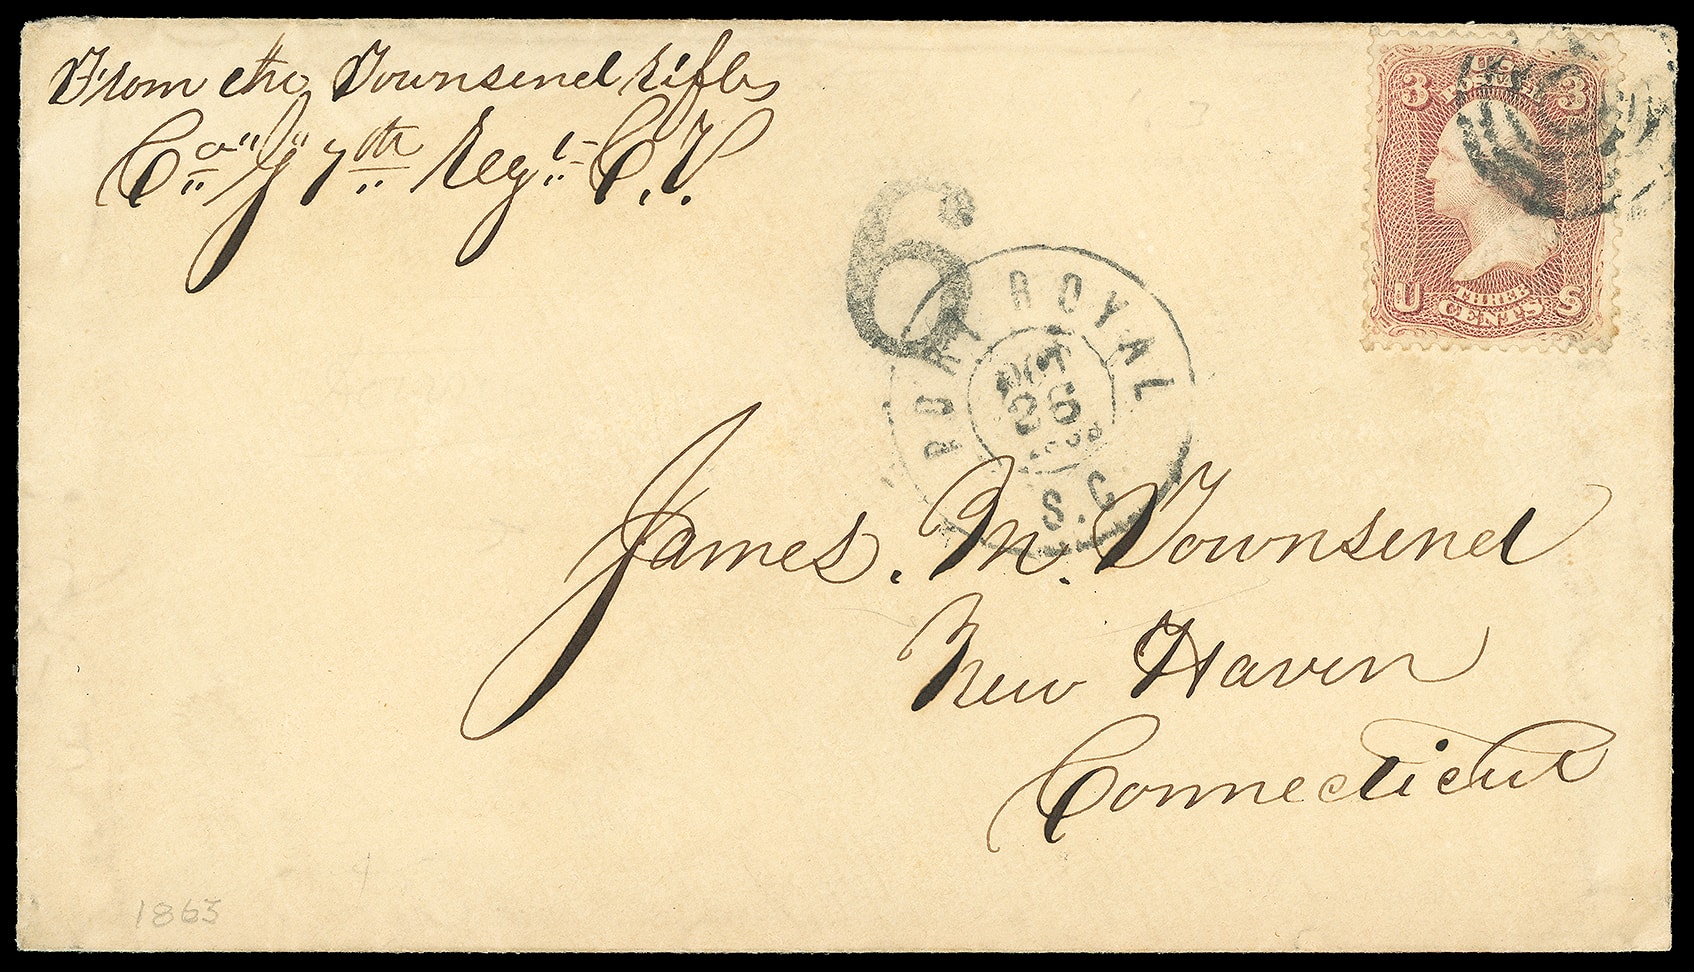 From the Townsend Rifles
Co "J" 7th Regt C.V.
3 U.S. POSTAGE 3
U THREE CENTS S
6
PORT ROYAL
OCT
26
1863
S.C.
James. M. Townsend
New Haven
Connecticut
1863